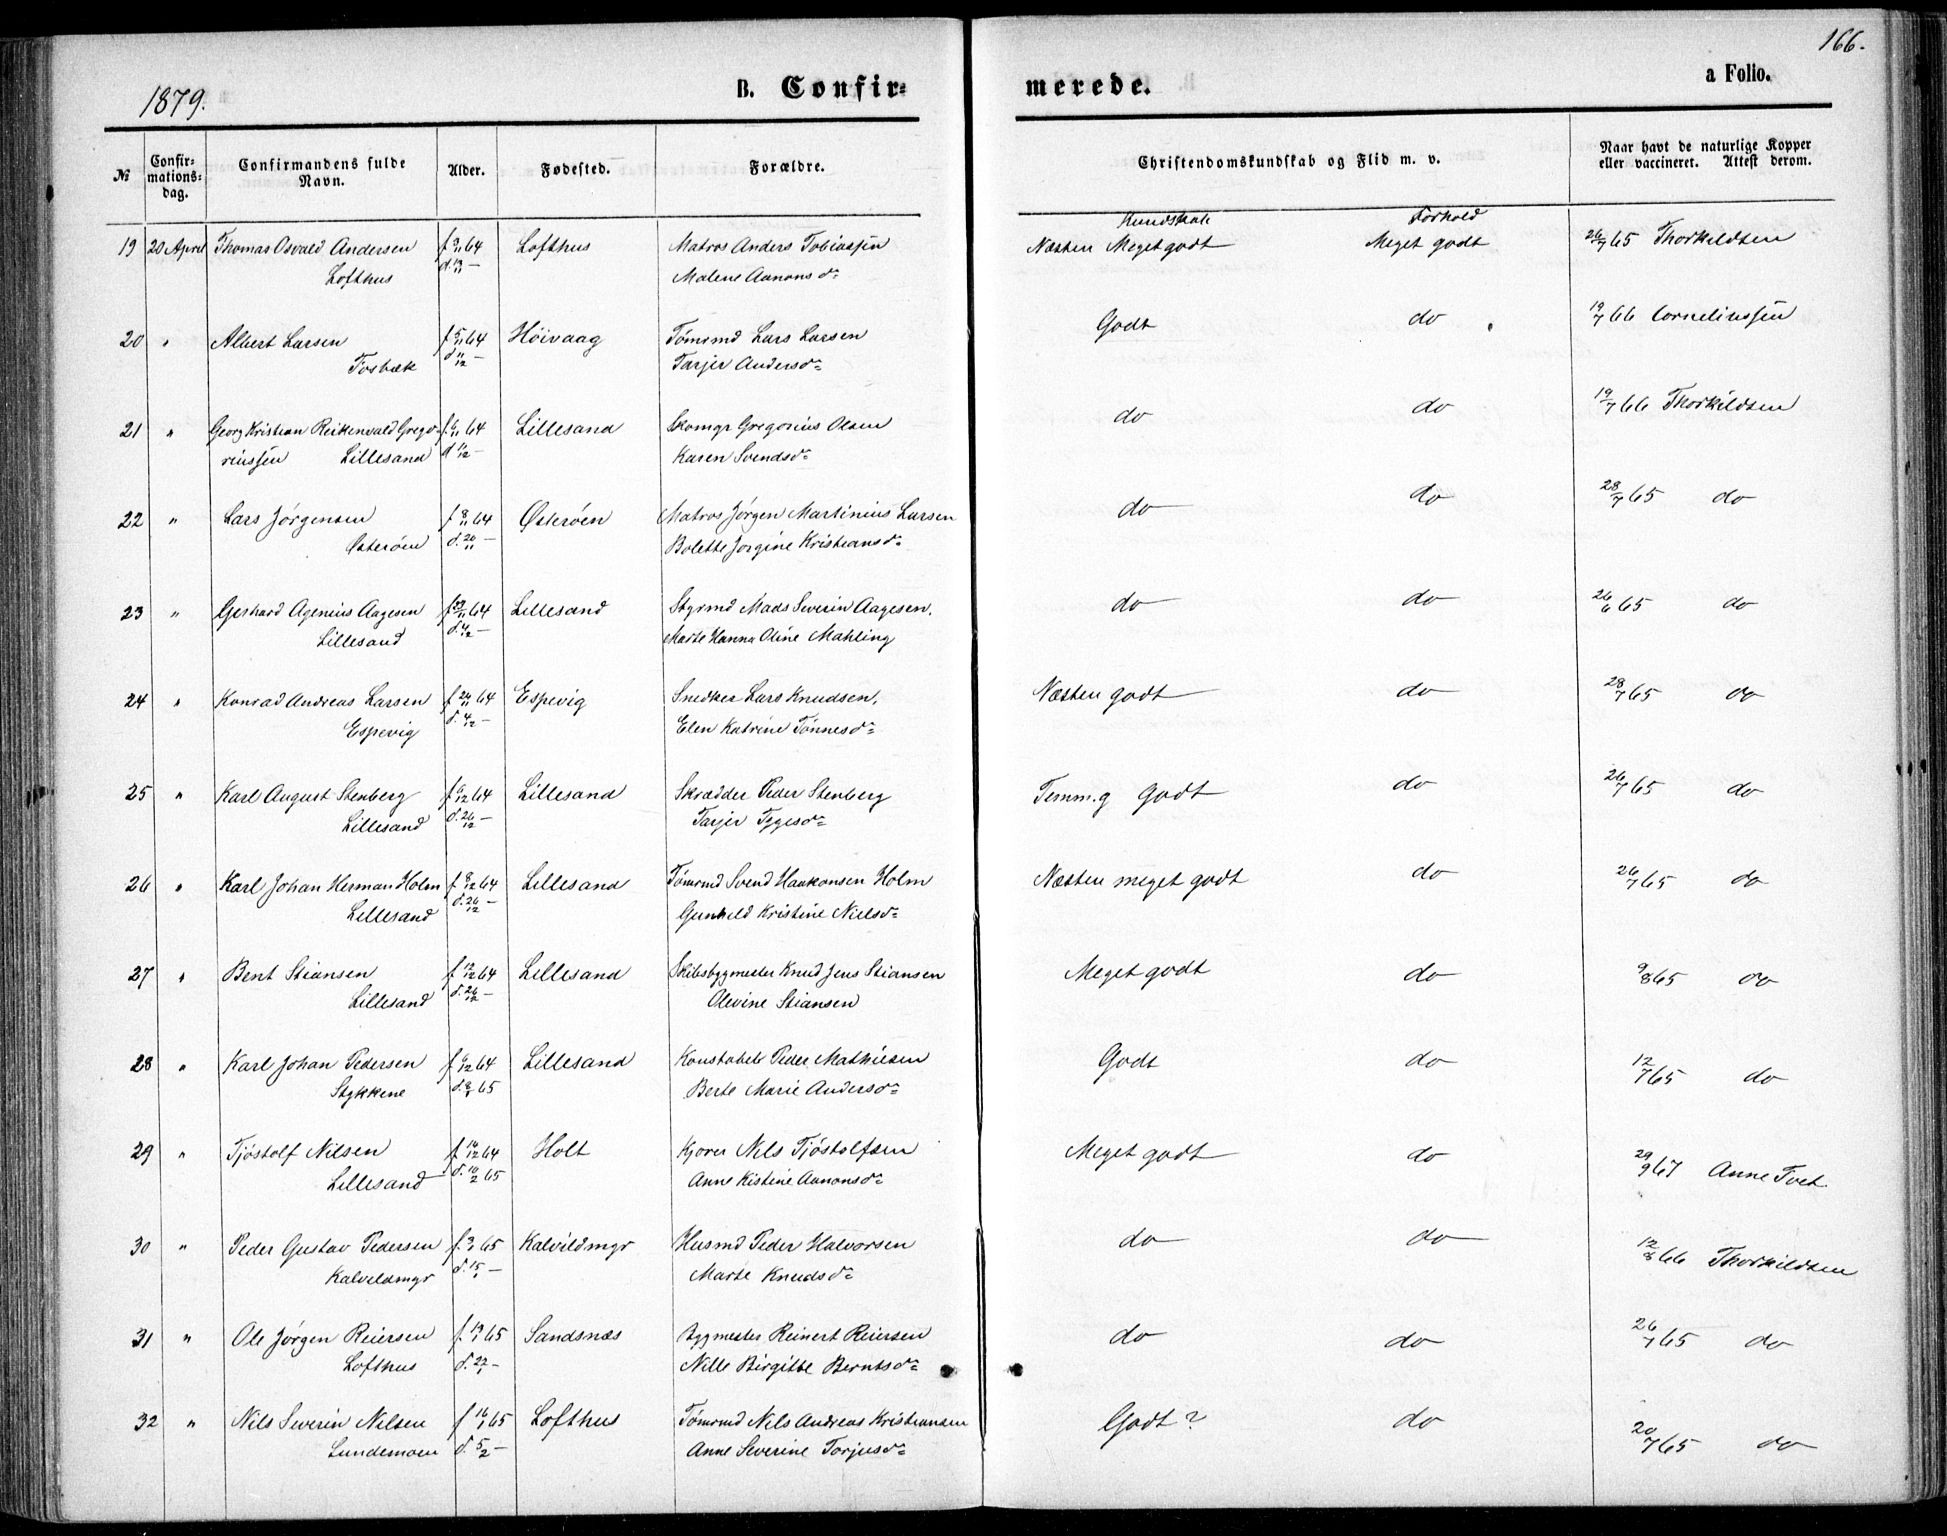 166.
a Folio.
1879.
B. Confir- merede.
No
Confir-
mations-
dag.
Confirmandens fulde
Navn.
Alder.
Fødested.
Forældre.
Christendomskundskab og Flid m. v.
Naar havt de naturlige Kopper
eller vaccineret. Attest derom.
Kundskab Forhold
19 20 April Thomas Osvald Andersen f 9/11 64 Lofthus Matros Anders Tobiassen Næsten Meget godt Meget godt 26/7 65 Thorkildsen
Lofthus d. 13/11 — Malene Aanonsd
20 " Albert Larsen f 5/11 64 Höivaag Tømrmd Lars Larsen Godt do 19/7 66 Corneliussen
Fosbæk d 11/12 — Tarjer Andersd
21 " Georg Kristian Reikenvald Grego- f 6/11 64 Lillesand Skomgr Gregorius Olsen do do 19/7 66 Thorkildsen
riussen Lillesand d 11/12 — Karen Svendsd
22 " Lars Jørgensen f 8/11 64 Østerøen Matros Jørgen Martinius Larsen do do 28/7 65 do
Østerøen d. 20/11 — Bolette Jorgine Kristiansd
23 " Gerhard Agenius Aagesen 64 Lillesand Styrmd Mads Severin Aagesen. do do 26/6 65 do
Lillesand d. 4/12 — Marte Hanna Oline Mahling
24 " Konrad Andreas Larsen f 24/11 64 Espevig Snedker Lars Knudsen, Næsten godt do 28/7 65 do
Espevig d. 4/12 — Elen Katrine Tönnesd
25 " Karl August Stenberg f 6/12 64 Lillesand Skrædder Peder Stenberg Temm.g godt do 26/7 65 do
Lillesand d. 26/12 — Tarjer Tygesd
26 " Karl Johan Herman Holm f 8/12 64 Lillesand Tømrmd Svend Haakonsen Holm Næsten meget godt do 26/7 65 do
Lillesand d. 26/12 — Gunhild Kristine Nielsd
27 " Bent Stiansen f 12/12 64 Lillesand Skibsbygmester Knud Jens Stiansen Meget godt do 9/8 65 do
Lillesand d. 26/12 — Olevine Stiansen
28 " Karl Johan Pedersen f 6/12 64 Lillesand Konstabel Peder Mathiesen Godt do 12/7 65 do
Stykkene d. 8/1 65 Berte Marie Andersd
29 " Tjöstolf Nilsen f 14/12 64 Holt Kjører Nils Tjöstolfsen Meget godt do 29/9 67 Anne Tvet.
Lillesand d. 10/2 65 Anne Kistine Aanonsd
30 " Peder Gustav Pedersen f. 3/1 65 Kalvildmgr Husmd Peder Halvorsen do do 12/8 66 Thorkildsen
Kalvildmgr d. 15/1 — Marte Knudsd
31 " Ole Jørgen Reiersen f. 13/1 65 Sandsnæs Bygmester Reinert Reiersen do do 26/7 65 do
Lofthus d. 22/1 — Nille Birgitte Berntsd
32 " Nils Severin Nilsen f 16/1 65 Lofthus Tømrmd Nils Andreas Kristiansen Godt? do 20/7 65 do
Lundemoen d. 5/2 — Anne Severine Torjusd